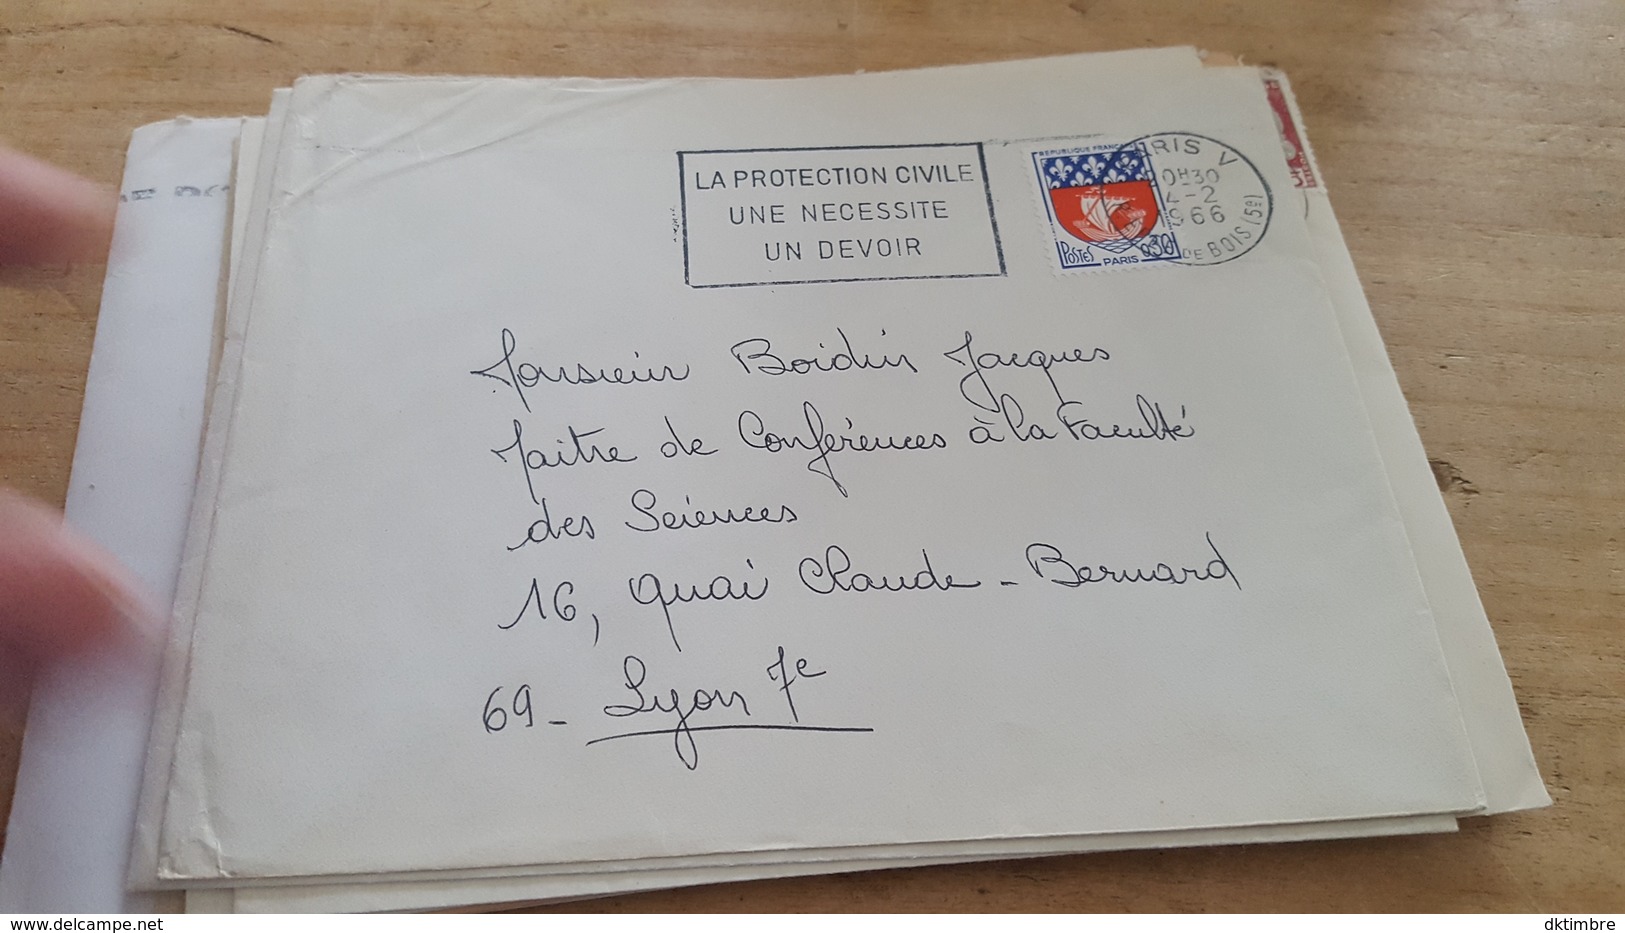 LA PROTECTION CIVILE
UNE NECESSITE
UN DEVOIR
REPUBLIQUE FRANCAISE
POSTES PARIS 0,30
PARIS V
0H30
-2
1966
DE BOIS (5e)
Monsieur Boidin Jacques
Maitre de Conférences à la Faculté
des Sciences
16, Quai Claude-Bernard
69- Lyon 7e
delcampe.net
dktimbre